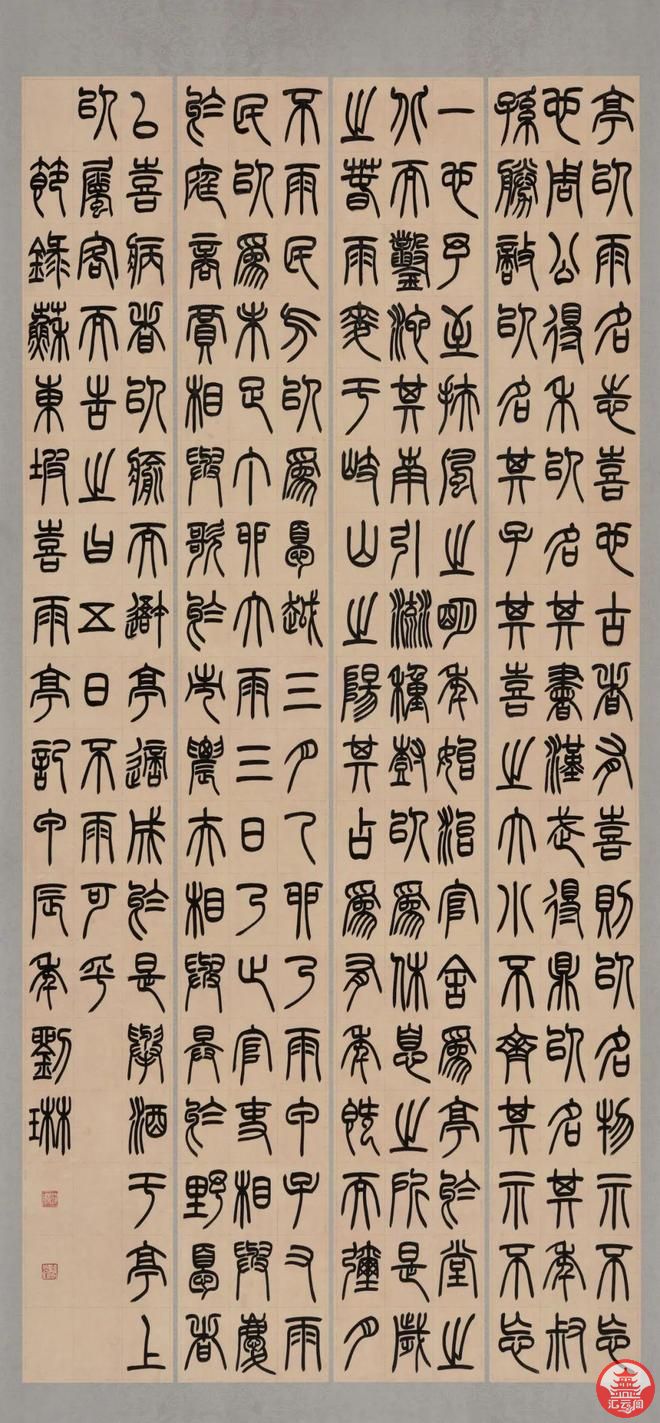 亭以雨名志喜也古者有喜則以名物示不忘
也周公得禾以名其書漢武得鼎以名其年叔
孫勝敵以名其子其喜之大小不齊其示不忘
一也予至扶風之明年始治官舍為亭於堂之
北而鑿池其南引流種樹以為休息之所是歲
之春雨麥于岐山之陽其占為有年既而彌月
不雨民方以為憂越三月乙卯乃雨甲子又雨
民以為未足丁卯大雨三日乃止官吏相與慶
於庭商賈相與歌於市農夫相與昪於野憂者
以喜病者以愈而吾亭適成於是舉酒于亭上
以屬客而告之曰五日不雨可乎
節錄蘇東坡喜雨亭記甲辰年劉琳
汇云阁